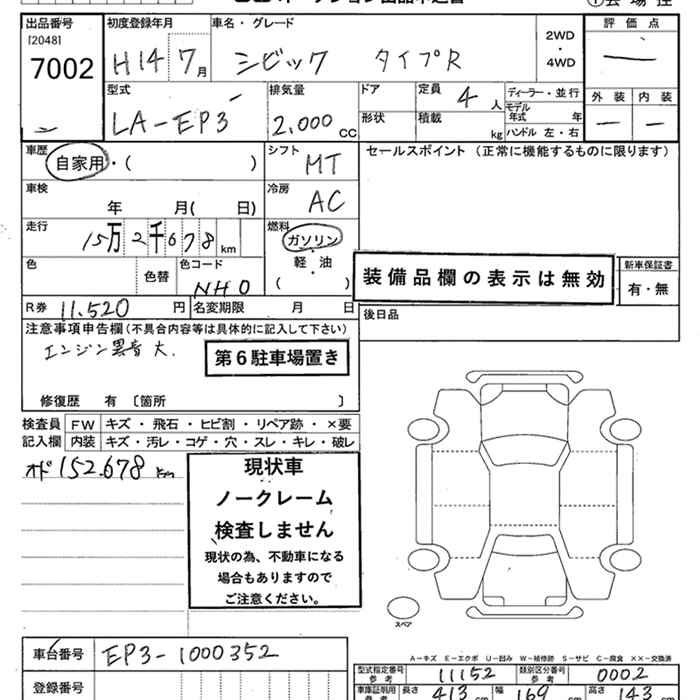 出品番号 初度登録年月 車名・グレード 評価点
[2048]
7002 H14 7月 シビック タイプR 2WD・4WD —
型式 排気量 ドア 定員 4人 ディーラー・並行 外装 内装
LA-EP3 2,000cc 形状 積載 kg モデル年式 年 — —
ハンドル 左・右
車歴 自家用・( ) シフト MT セールスポイント (正常に機能するものに限ります)
車検 年 月( 日) 冷房 AC
走行 15万2千678km 燃料 ガソリン・軽油・( )
色 色替 色コード NH0 装備品欄の表示は無効 新車保証書 有・無
R券 11.520円 名変期限 月 日 後日品
注意事項申告欄(不具合内容等は具体的に記入して下さい)
エンジン異音大.
第6駐車場置き
修復歴 有 〔箇所 〕
検査員記入欄 FW キズ・飛石・ヒビ割・リペア跡・×要
内装 キズ・汚レ・コゲ・穴・スレ・キレ・破レ
オド152.678km
現状車
ノークレーム
検査しません
現状の為、不動車になる
場合もありますので
ご注意ください。
スペア
A-キズ E-エクボ U-凹み W-補修跡 S-サビ C-腐食 XX-交換済
車台番号 EP3-1000352
型式指定番号 参考 11152 類別区分番号 参考 0002
登録番号
車庫証明用 参考 長さ 413cm 幅 169cm 高さ 143cm